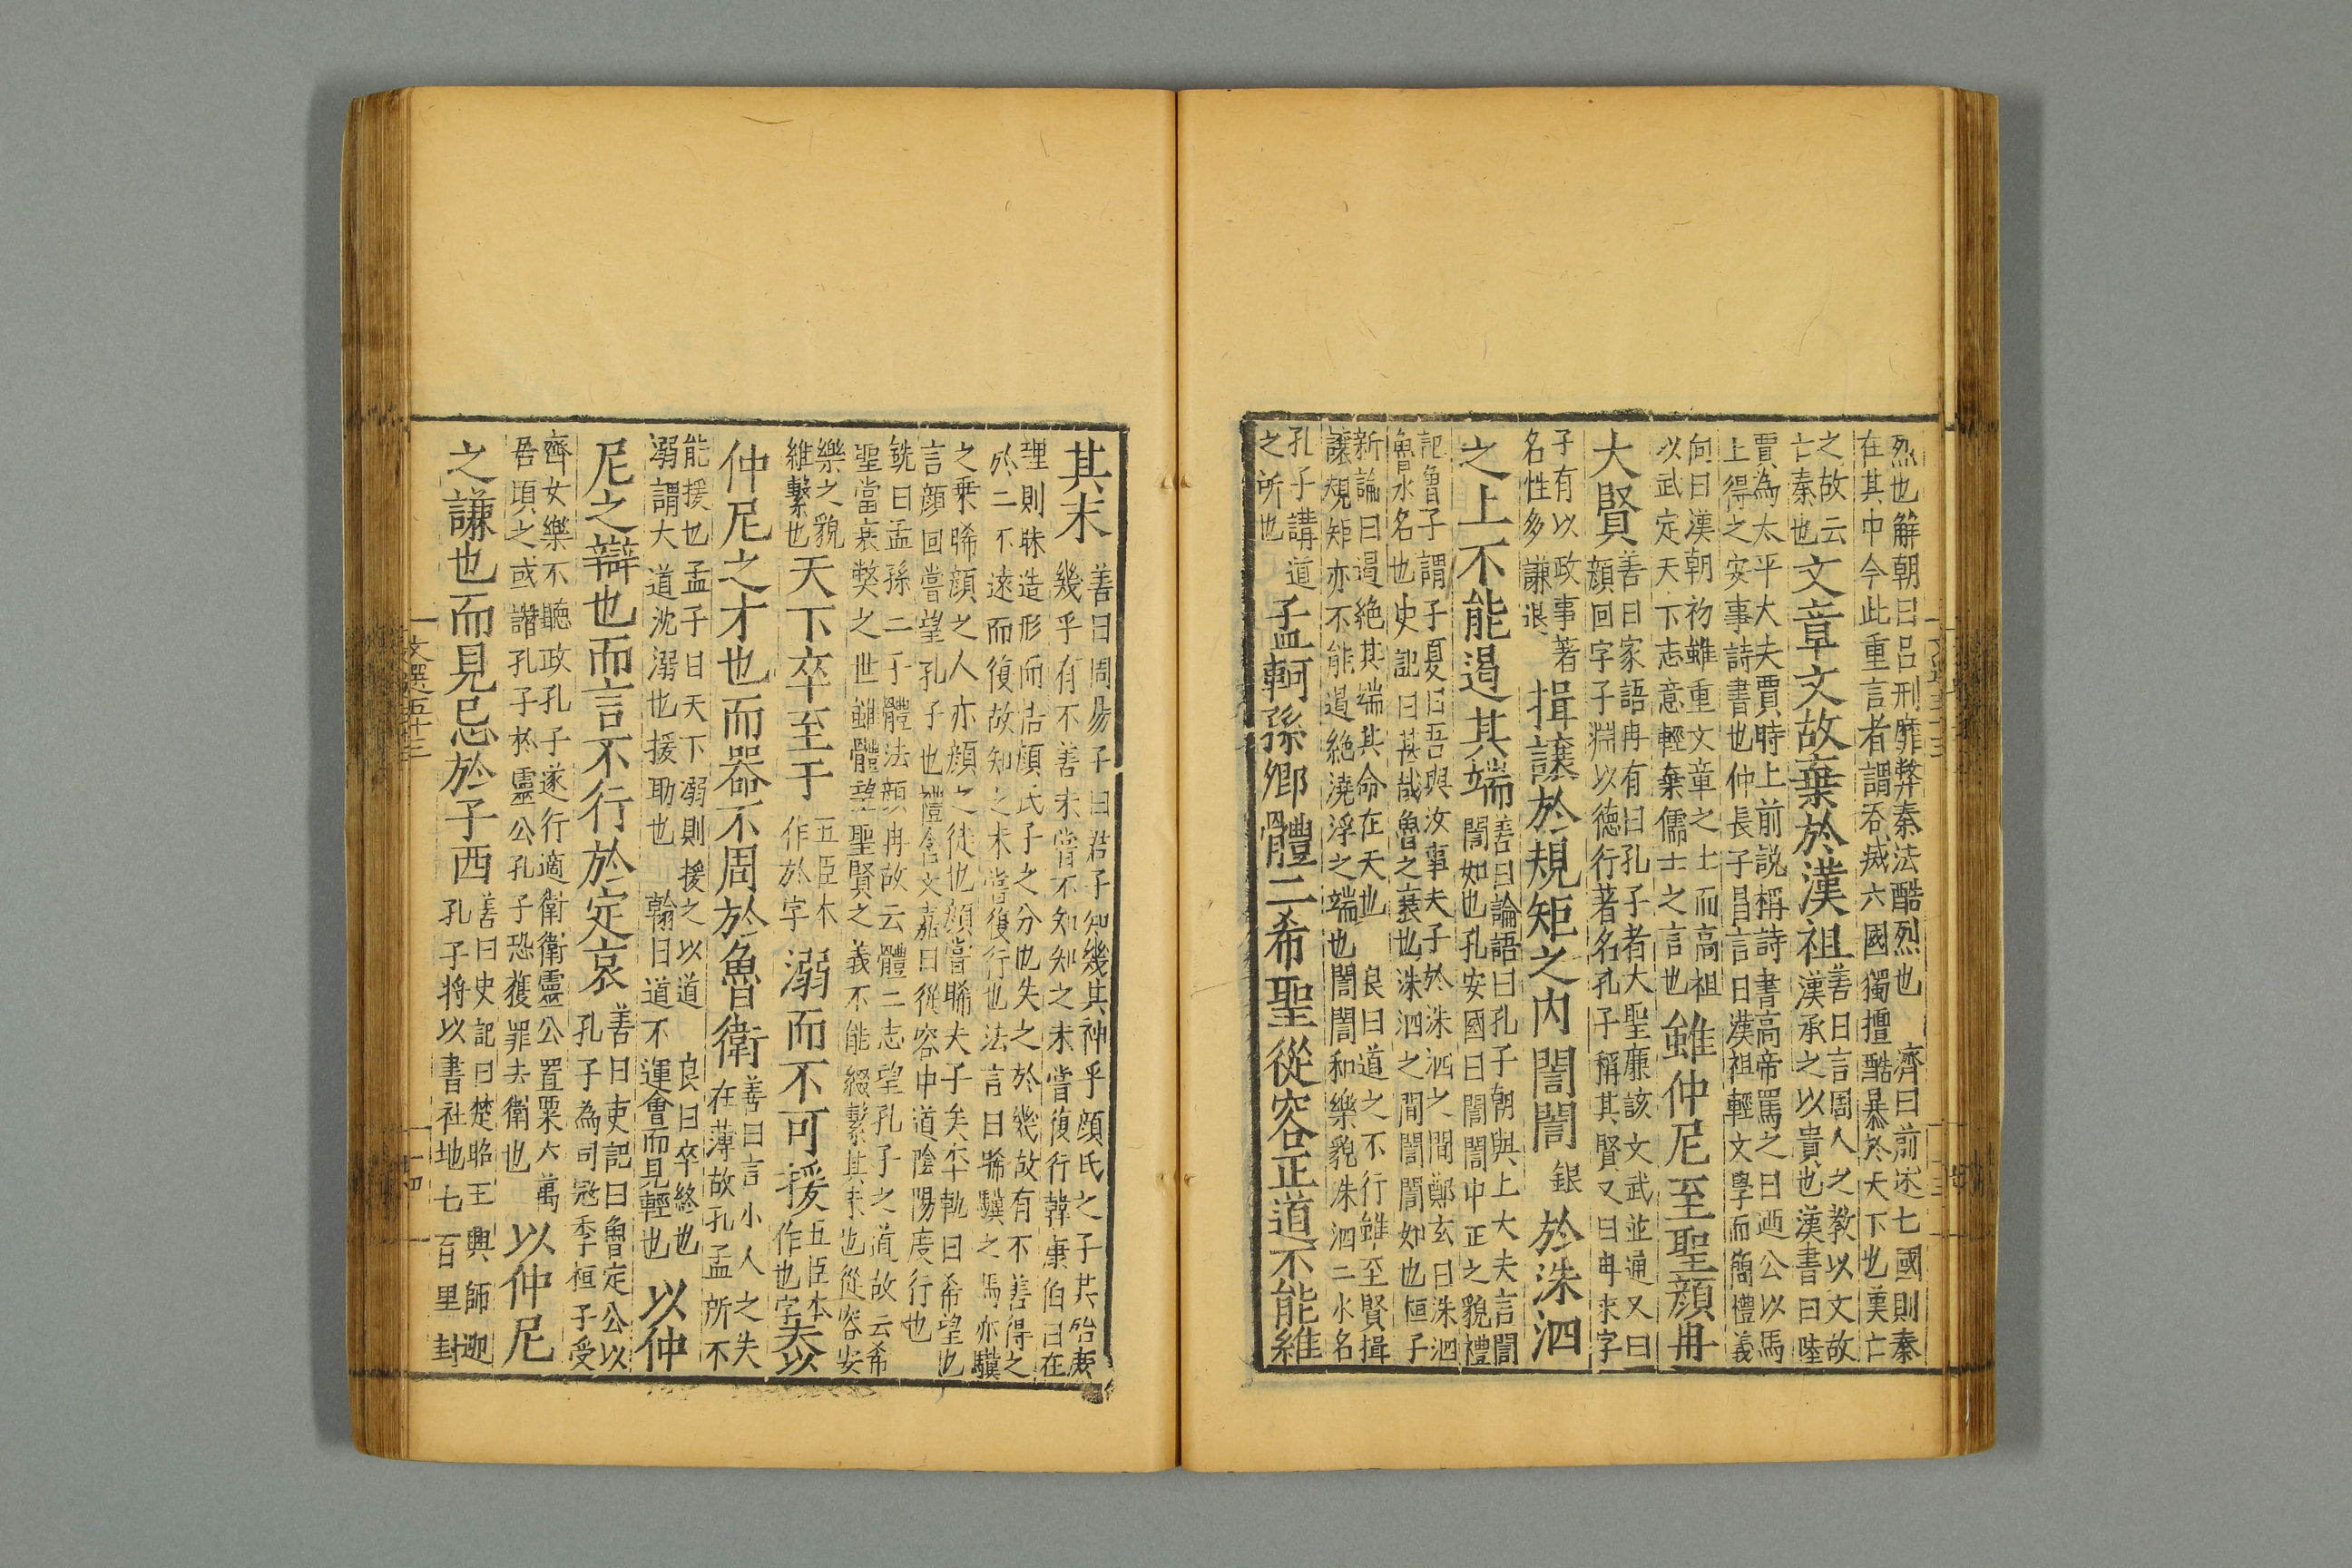 烈也解朝曰吕刑靡弊秦法酷烈也　濟曰前述七國則秦
在其中今此重言者謂吞滅六國獨擅酷暴於天下也漢亡
之故云
亡秦也
文章文故棄於漢祖
善曰言周人之教以文故
漢承之以貴也漢書曰陸
賈為太平大夫賈時上前説稱詩書高帝罵之曰迺公以馬
上得之安事詩書也仲長子昌言曰漢祖輕文學而簡禮義
向曰漢朝初雖重文章之士而高祖
以武定天下志意輕棄儒士之言也
雖仲尼至聖顔冉
大賢
善曰家語冉有曰孔子者大聖廉該文武並通又曰
顔回字子淵以德行著名孔子稱其賢又曰冉求字
子有以政事著
名性多謙退
揖讓於規矩之内誾誾
銀
於洙泗
之上不能遏其端
善曰論語曰孔子朝與上大夫言誾
誾如也孔安國曰誾誾中正之貌禮
記魯子謂子夏曰吾與汝事夫子於洙泗之間鄭玄曰洙泗
魯水名也史記曰甚哉魯之衰也洙泗之間誾誾如也桓子
新論曰遏絶其端其命在天也　良曰道之不行雖至賢揖
讓規矩亦不能遏絶澆浮之端也誾誾和樂貌洙泗二水名
孔子講道
之所也
孟軻孫卿體二希聖從容正道不能維
其末
善曰周易子曰君子知幾其神乎顔氏之子其殆庶
幾乎有不善未嘗不知知之未嘗復行韓康伯曰在
理則昧造形而悟顔氏子之分也失之於幾故有不善得之
於二不遠而復故知之未嘗復行也法言曰睎驥之馬亦驥
之乗睎顔之人亦顔之徒也顔嘗睎夫子矣李軌曰希望也
言顔回嘗望孔子也禮含文嘉曰從容中道陰陽度行也
銑曰孟孫二子體法顔冉故云體二志望孔子之道故云希
聖當衰弊之世雖體望聖賢之義不能綴繫其末也從容安
樂之貌
維繫也
天下卒至于
五臣本
作於字
溺而不可援
五臣本
作也字
夫以
仲尼之才也而器不周於魯衛
善曰言小人之失
在薄故孔孟所不
能援也孟子曰天下溺則援之以道　良曰卒終也
溺謂大道沈溺也援助也　翰曰道不運會而見輕也
以仲
尼之辯也而言不行於定哀
善曰史記曰魯定公以
孔子為司冦季桓子受
齊女樂不聽政孔子遂行適衛衛靈公置粟六萬
居頃之或譖孔子於靈公孔子恐獲罪去衛也
以仲尼
之謙也而見忌於子西
善曰史記曰楚昭王興師迎
孔子將以書社地七百里封
文選五十三
十四